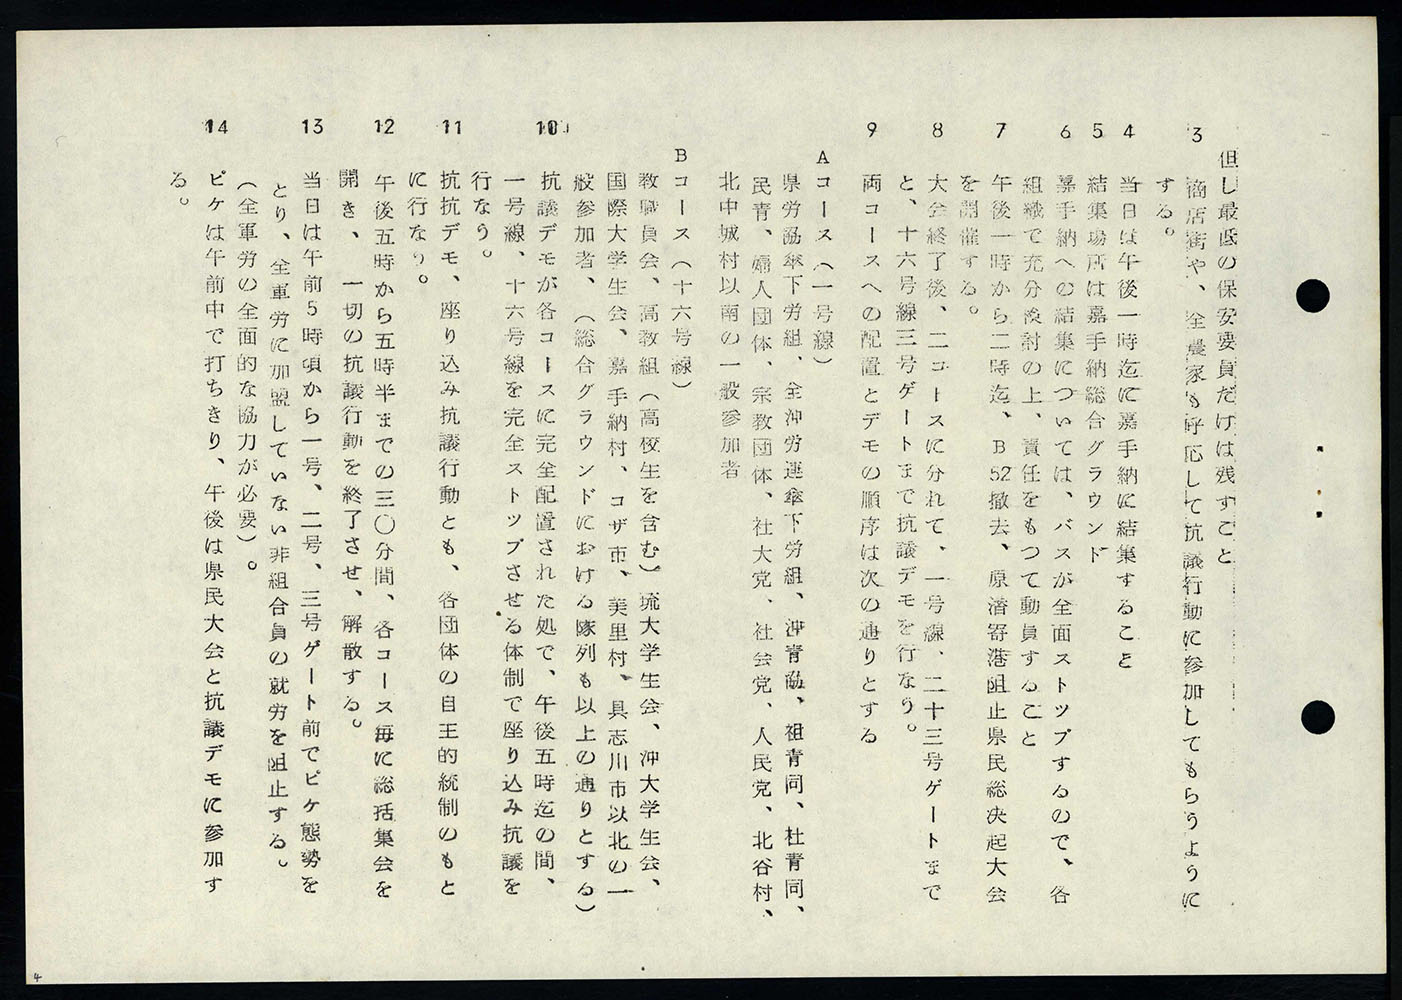 但し最低の保安要員だけは残すこと
3 商店街や、全農家も呼応して抗議行動に参加してもらうように
する。
4 当日は午後一時迄に嘉手納に結集すること
5 結集場所は嘉手納総合グラウンド
6 嘉手納への結集については、バスが全面ストップするので、各
組織で充分検討の上、責任をもつて動員すること
7 午後一時から二時迄、B52撤去、原潜寄港阻止県民総決起大会
を開催する。
8 大会終了後、二コースに分れて、一号線、二十三号ゲートまで
と、十六号線三号ゲートまで抗議デモを行なう。
9 両コースへの配置とデモの順序は次の通りとする
Aコース(一号線)
県労協傘下労組、全沖労連傘下労組、沖青協、祖青同、社青同、
民青、婦人団体、宗教団体、社大党、社会党、人民党、北谷村、
北中城村以南の一般参加者
Bコース(十六号線)
教職員会、高教組(高校生を含む)琉大学生会、沖大学生会、
国際大学生会、嘉手納村、コザ市、美里村、具志川市以北の一
般参加者、(総合グラウンドにおける隊列も以上の通りとする)
10 抗議デモが各コースに完全配置された処で、午後五時迄の間、
一号線、十六号線を完全ストップさせる体制で座り込み抗議を
行なう。
11 抗抗デモ、座り込み抗議行動とも、各団体の自主的統制のもと
に行なう。
12 午後五時から五時半までの三〇分間、各コース毎に総括集会を
開き、一切の抗議行動を終了させ、解散する。
13 当日は午前5時頃から一号、二号、三号ゲート前でピケ態勢を
とり、全軍労に加盟していない非組合員の就労を阻止する。
(全軍労の全面的な協力が必要)。
14 ピケは午前中で打ちきり、午後は県民大会と抗議デモに参加す
る。
4